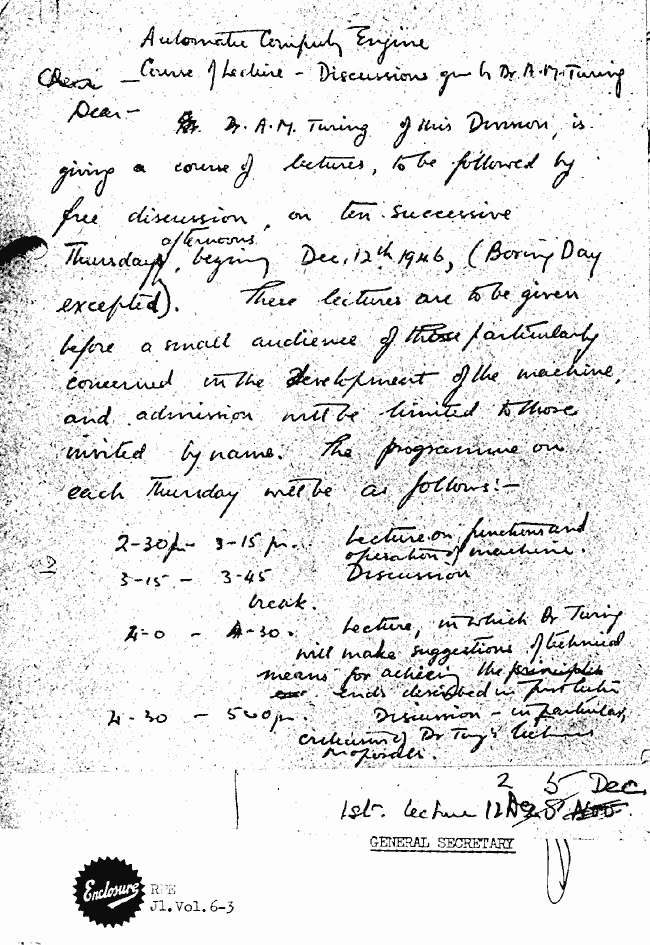 Automatic Computg Engine
Course of Lecture - Discussions given by Dr. A.M. Turing
Dear -
Dr. A.M. Turing of this Division, is
giving a course of lectures, to be followed by
free discussion, on ten successive
afternoons
Thursdays, beginng Dec. 12th 1946, (Boxing Day
excepted). These lectures are to be given
before a small audience of those particularly
concerned in the development of the machine,
and admission will be limited to those
invited by name. The programme on
each Thursday will be as follows:-
2-30 pm - 3-15 pm. Lecture on functions and
operation of machine.
3-15 - 3-45 Discussion
break.
4-0 - 4-30. Lecture, in which Dr Turing
will make suggestions of technical
means for achieving the principles
ends described in first lecture
4-30 - 5-00 pm. Discussion - in particular,
criticism of Dr Turing's technical
proposals.
2 5 Dec
1st. lecture 12
GENERAL SECRETARY
Enclosure
J1.Vol.6-3